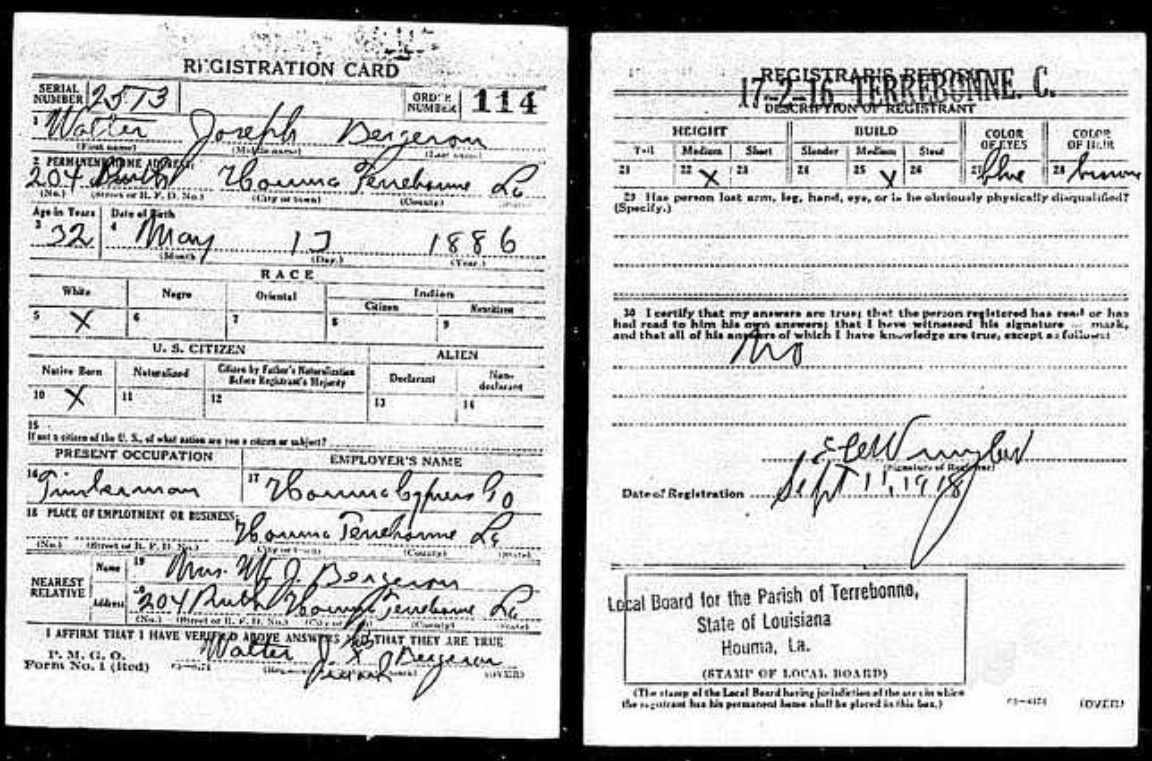 REGISTRATION CARD
SERIAL NUMBER 2573 ORDER NUMBER 114
1 Walter Joseph Bergeron
(First name) (Middle name) (Last name)
2 PERMANENT HOME ADDRESS:
204 Houma Terrebonne La
(No.) (Street or R. F. D. No.) (City or town) (County) (State)
Age in Years Date of Birth
3 32 4 May 1886
(Month) (Day.) (Year.)
RACE
White Negro Oriental Indian
Citizen Noncitizen
5 X 6 7 8 9
U. S. CITIZEN ALIEN
Native Born Naturalized Citizen by Father's Naturalization Before Registrant's Majority Declarant Non-declarant
10 X 11 12 13 14
15
If not a citizen of the U. S., of what nation are you a citizen or subject?
PRESENT OCCUPATION EMPLOYER'S NAME
16 Timberman 17 Houma Cypress Co
18 PLACE OF EMPLOYMENT OR BUSINESS:
Houma Terrebonne La
(No.) (Street or R. F. D. No.) (City or town) (County) (State)
NEAREST RELATIVE
Name 19 Mrs. W. J. Bergeron
Address 20 204 Houma Terrebonne La
(No.) (Street or R. F. D. No.) (City or town) (County) (State)
I AFFIRM THAT I HAVE VERIFIED ABOVE ANSWERS AND THAT THEY ARE TRUE
P. M. G. O.
Form No. 1 (Red)
Walter J. his X mark Bergeron
(OVER)
REGISTRAR'S REPORT
17-2-16 TERREBONNE. C.
DESCRIPTION OF REGISTRANT
HEIGHT BUILD COLOR OF EYES COLOR OF HAIR
Tall Medium Short Slender Medium Stout
21 22 X 23 24 25 X 26 27 blue 28 brown
29 Has person lost arm, leg, hand, eye, or is he obviously physically disqualified?
(Specify.)
30 I certify that my answers are true; that the person registered has read or has
had read to him his own answers; that I have witnessed his signature or mark,
and that all of his answers of which I have knowledge are true, except as follows:
No
(Signature of Registrar)
Date of Registration Sept 11, 1918
Local Board for the Parish of Terrebonne,
State of Louisiana
Houma, La.
(STAMP OF LOCAL BOARD)
(The stamp of the Local Board having jurisdiction of the area in which
the registrant has his permanent home shall be placed in this box.)
(OVER)